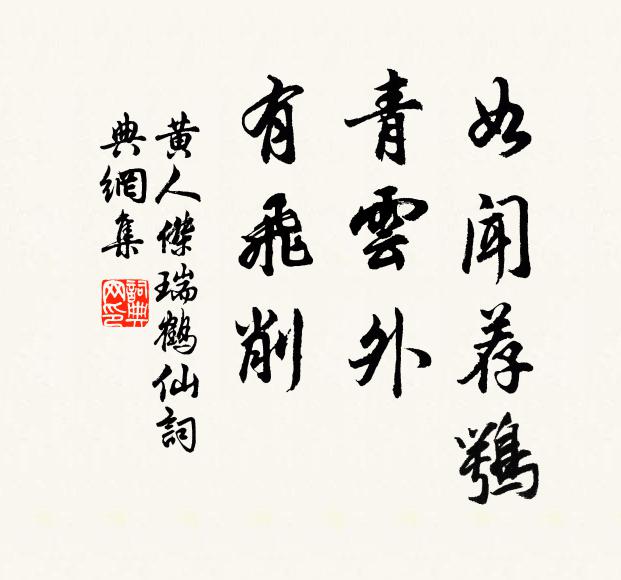 如聞荐鶚
青雲外
有飛削
黄人傑瑞鶴仙詞
典網集
詞典網印